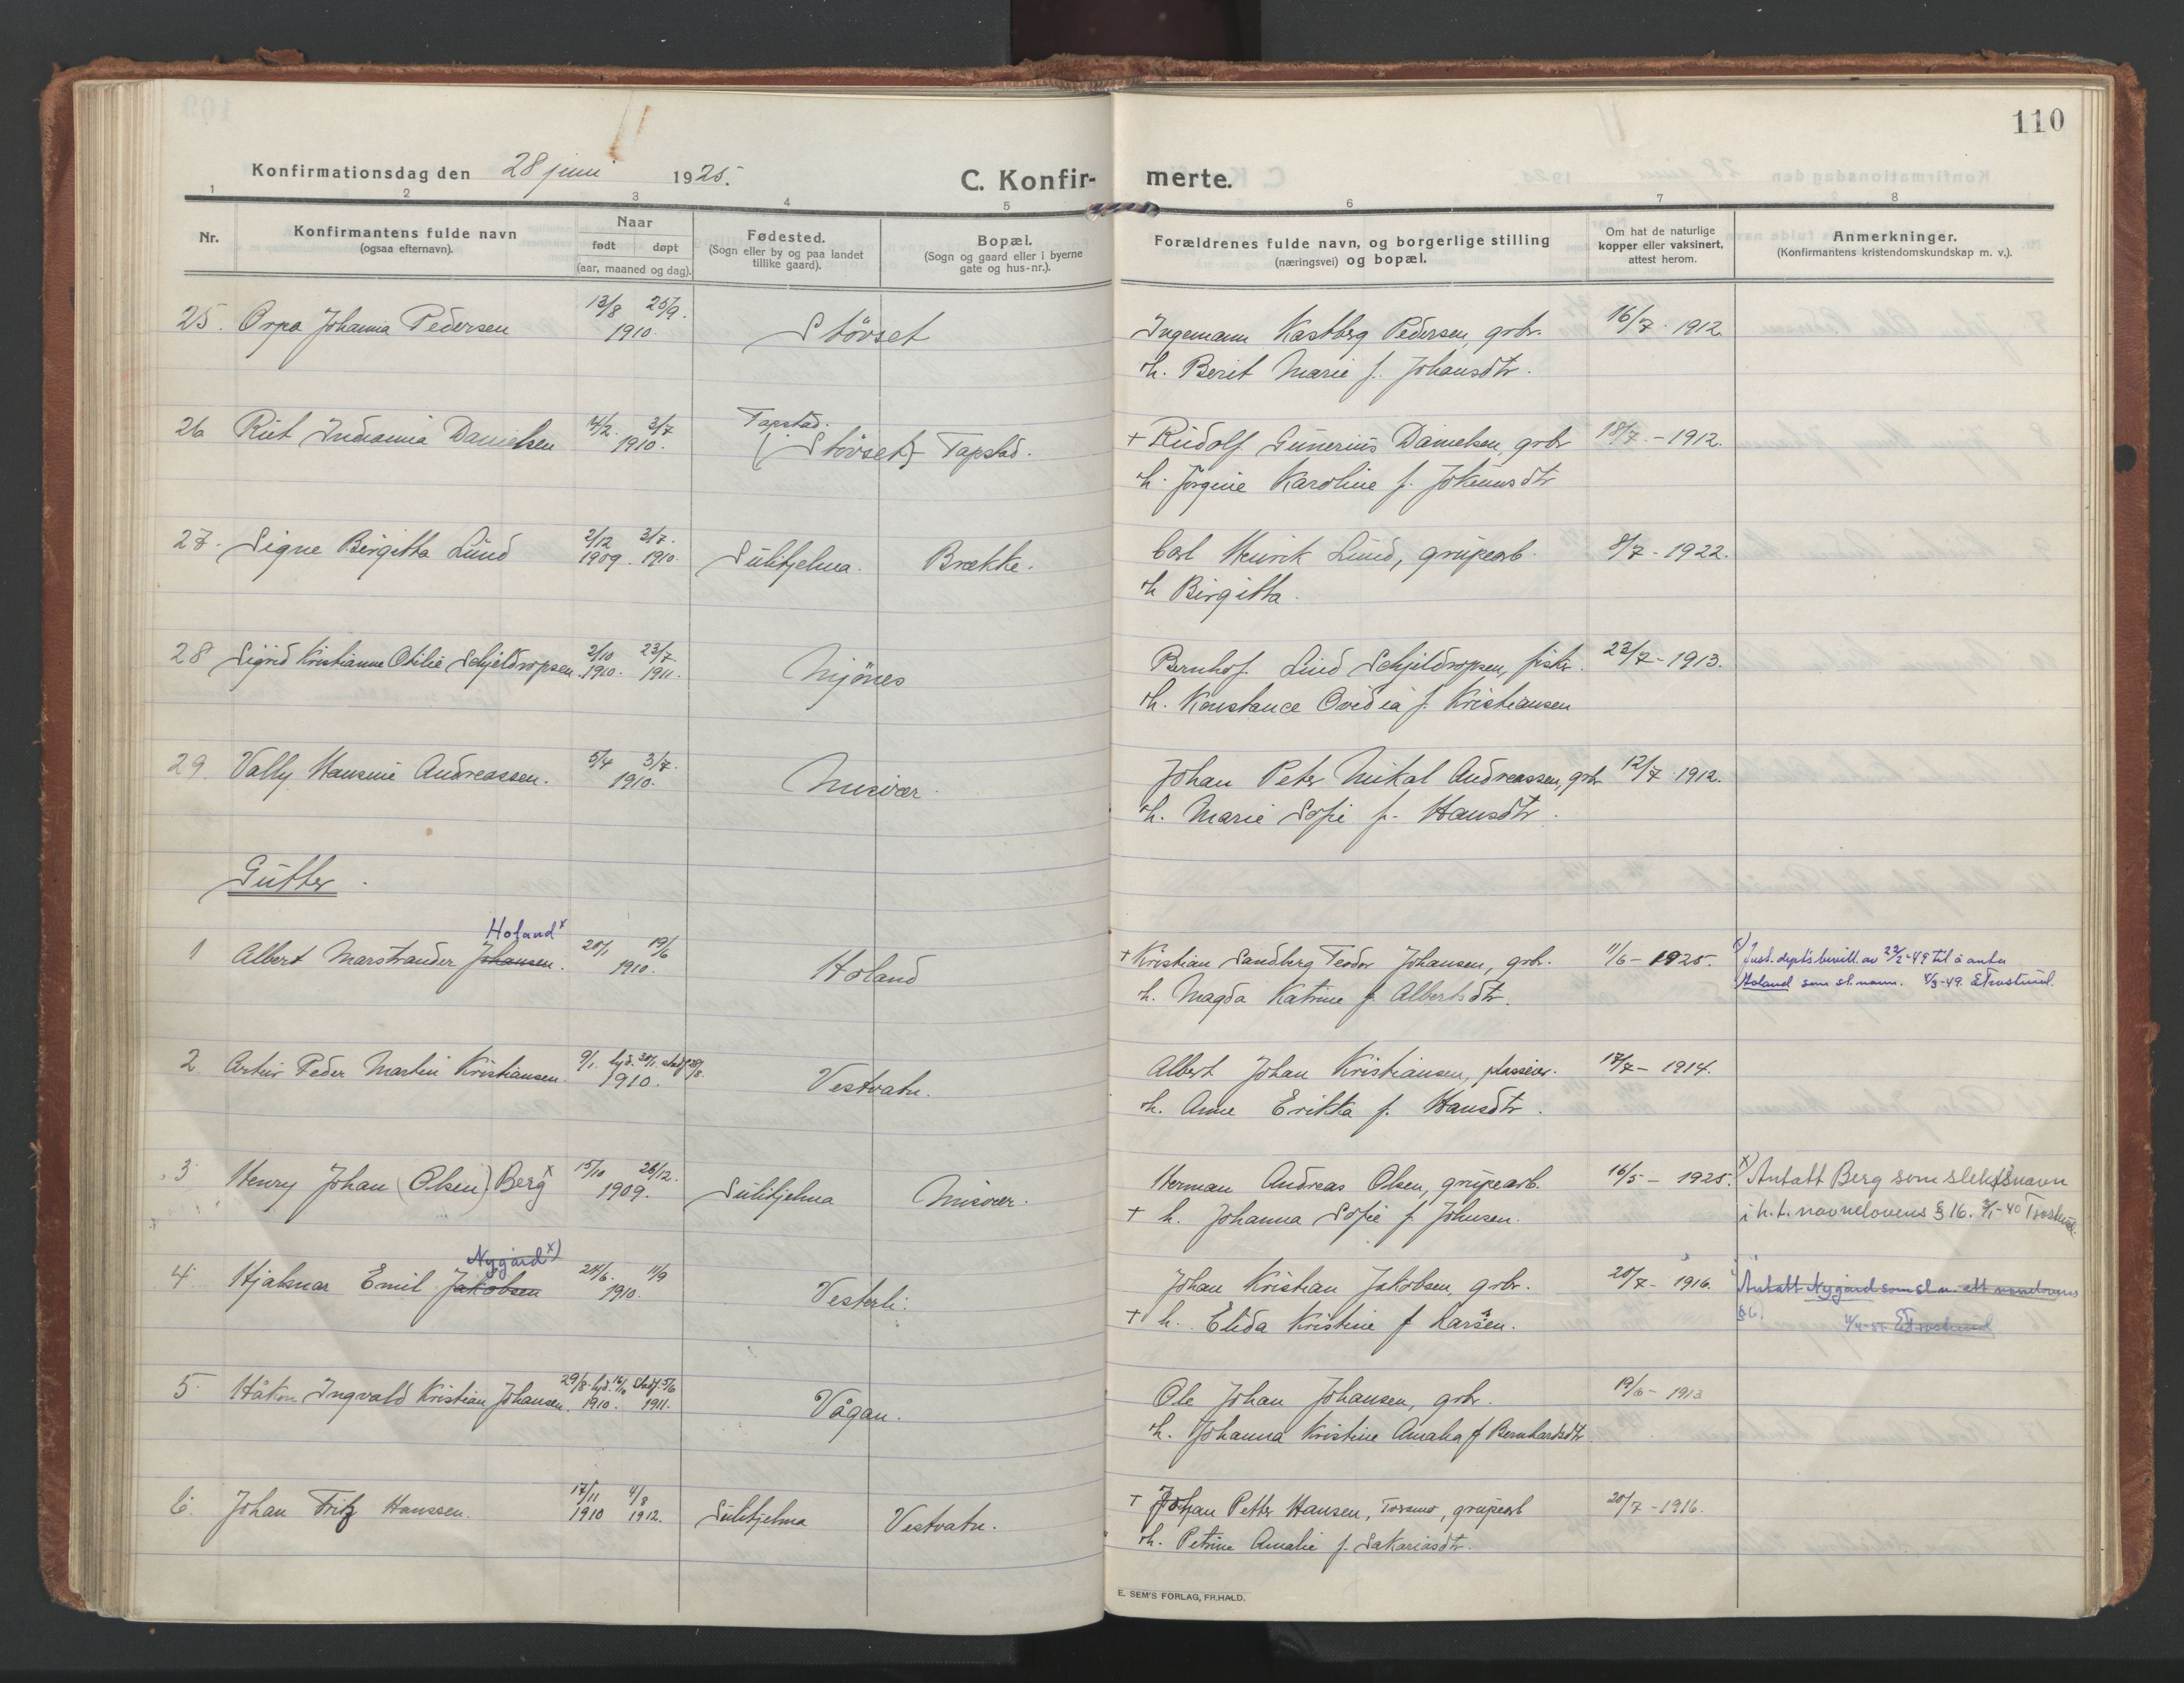 110
Konfirmationsdag den 28 juni 1925.
C. Konfir- merte.
1 2 3 4 5 6 7 8
Nr.
Konfirmantens fulde navn
(ogsaa efternavn).
Naar
født døpt
(aar, maaned og dag).
Fødested.
(Sogn eller by og paa landet
tillike gaard).
Bopæl.
(Sogn og gaard eller i byerne
gate og hus-nr.).
Forældrenes fulde navn, og borgerlige stilling
(næringsvei) og bopæl.
Om hat de naturlige
kopper eller vaksinert,
attest herom.
Anmerkninger.
(Konfirmantens kristendomskundskap m. v.).
25. Orpa Johanna Pedersen 13/8 25/9. 1910. Störset Ingemann Kastberg Pedersen, grbr. 16/7. 1912.
h. Berit Marie f. Johansdtr.
26 Rut Indiania Danielsen 14/2. 3/7 1910. Tapstad. (Störset) Tapstad. + Rudolf Gunerius Danielsen, grbr 18/7. - 1912.
h. Jörgine Karoline f. Johannsdtr
27. Signe Birgitta Lund 2/12 1909. 3/7. 1910. Sulitjelma. Brække. Carl Henrik Lund, grupearb. 8/7 - 1922.
h Birgitta.
28 Sigrid Kristianne Otilie Schjeldropsen. 2/10 1910. 23/7 1911. Mjönes Bernhof Lind Schjeldropsen, fisker. 23/7 - 1913.
h. Konstance Ovedia f. Kristiansen
29. Vally Hansine Andreassen. 5/4 3/7. 1910. Misvær. Johan Peter Mikal Andreassen, grbr 12/7 1912.
h. Marie Sofie f. Hansdtr.
Gutter.
Holand x
1 Albert Marstrander Johansen. 20/1 19/6 1910. Holand + Kristian Sandberg Teodor Johansen, grbr. 11/6 - 1925. x) Just. depts bevill. av 22/2-49 til å anta
h. Magda Katrine f. Albertsdtr. Holand som sl.navn. 4/3-49. ETrustrud.
2. Artur Peder Martin Kristiansen. 9/1. hjd. 30/1 stadf. 28/8. 1910. Vestvatn. Albert Johan Kristiansen, plasseier. 17/7 - 1914.
h. Anne Erikka f. Hansdtr.
3 Henry Johan (Olsen) Berg x 15/10 26/12. 1909. Sulitjelma Misvær. Herman Andreas Olsen, grupearb. 16/5 - 1925. x) Antatt Berg som slektsnavn
+ h. Johanna Sofie f. Johnsen. i h.t. navnelovens § 16. 3/1-40 Trostrud.
Nygård x)
4 Hjalmar Emil Jakobsen 24/6. 11/9 1910. Vesterli. Johan Kristian Jakobsen, grbr. 20/7 - 1916. Antatt Nygård som sl.n. ett navnlovens
+ h. Elida Kristine f Karsen. § 6.
5 Håkon Ingvald Kristian Johansen. 29/8. hjd. 16/10 1910. Stadf. 5/6 1911. Vågan. Ole Johan Johansen, grbr. 19/6 - 1913
h. Johanna Kristine Amalia f Bernhardsdtr
6. Johan Fritz Hanssen. 17/11 1910 4/8 1912. Sulitjelma Vestvatn. + Johan Petter Hansen, Torsmo, grupearb 20/7 - 1916.
h. Petrine Amalie f. Sakariasdtr.
E. SEM'S FORLAG, FR.HALD.